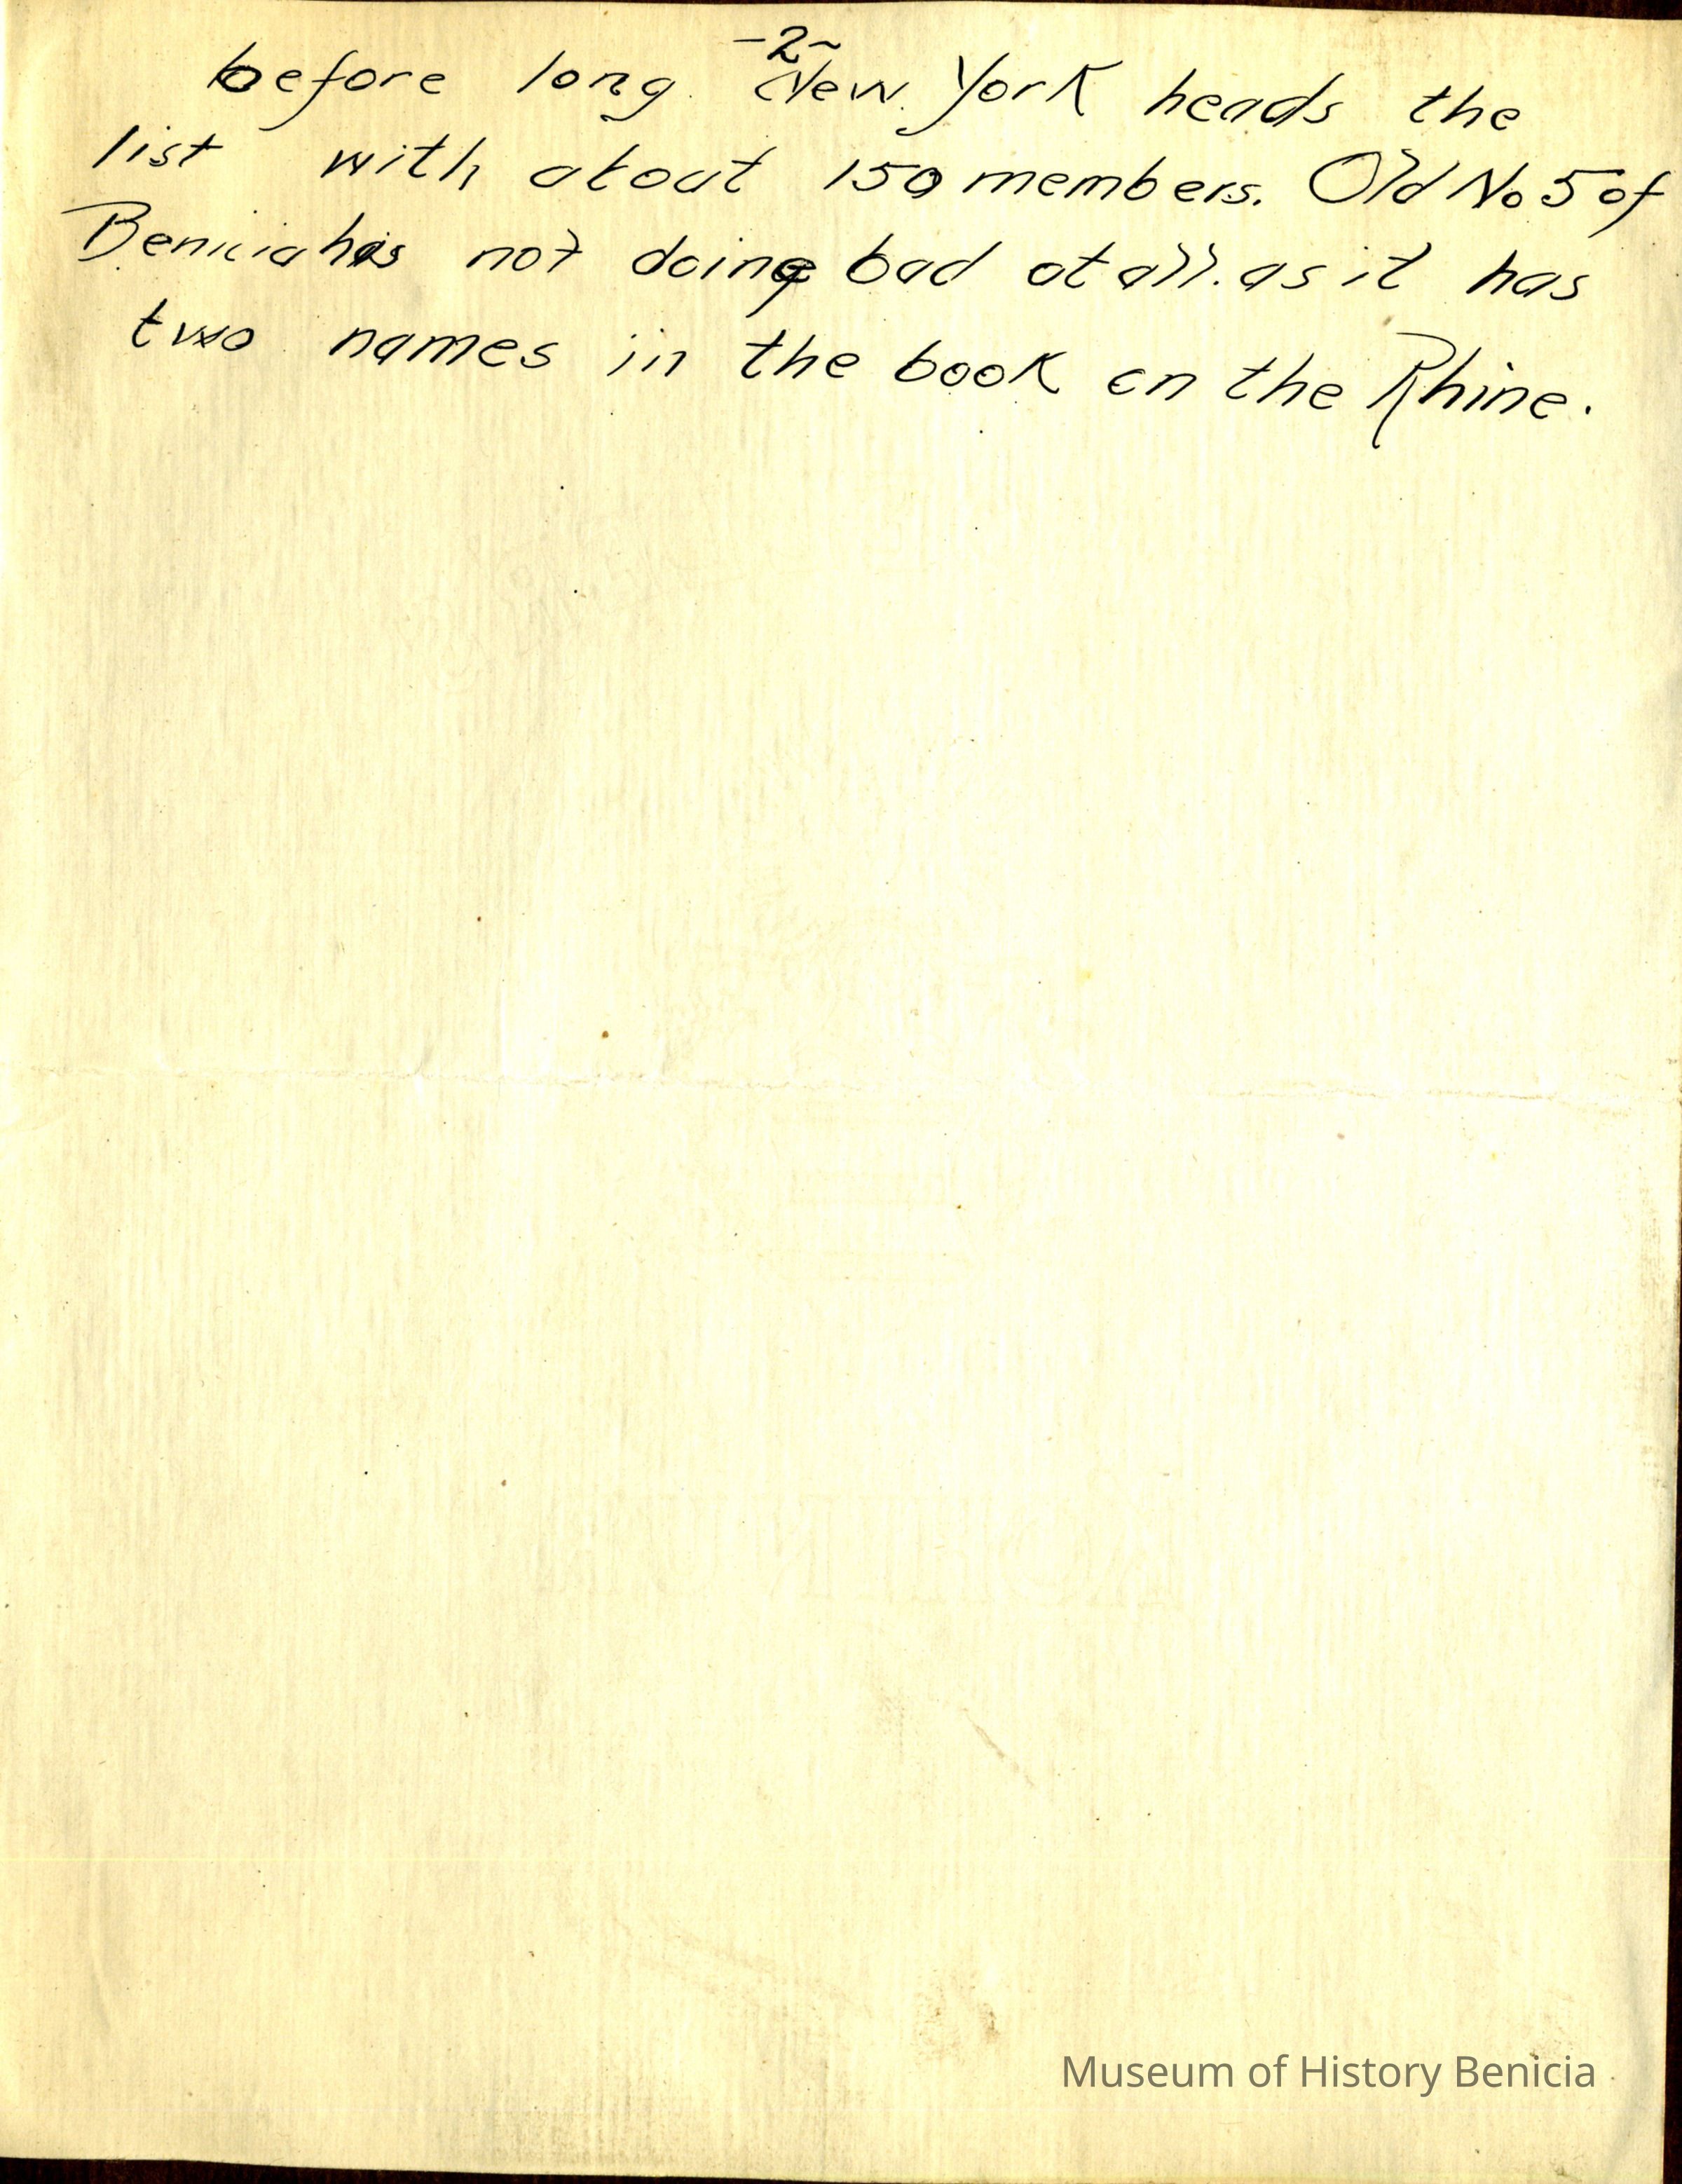 -2-
before long. New York heads the
list with about 150 members. Old No 5 of
Benicia is not doing bad at all. as it has
two names in the book on the Rhine.
Museum of History Benicia